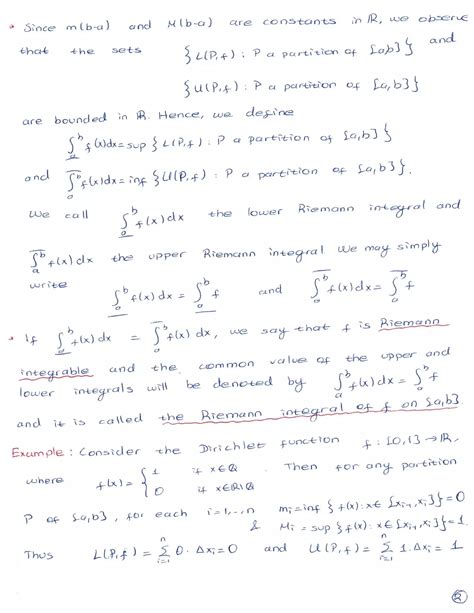 * Since m(b-a) and M(b-a) are constants in ℝ, we observe
that the sets {L(P,f) : P a partition of [a,b]} and
{U(P,f) : P a partition of [a,b]}
are bounded in ℝ. Hence, we define
∫̲ₐᵇ f(x)dx = sup {L(P,f) : P a partition of [a,b]}
and ∫̅ₐᵇ f(x)dx = inf {U(P,f) : P a partition of [a,b]}.
We call ∫̲ₐᵇ f(x)dx the lower Riemann integral and
∫̅ₐᵇ f(x)dx the upper Riemann integral We may simply
write ∫̲ₐᵇ f(x)dx = ∫̲ₐᵇ f and ∫̅ₐᵇ f(x)dx = ∫̅ₐᵇ f
* If ∫̲ₐᵇ f(x)dx = ∫̅ₐᵇ f(x)dx, we say that f is Riemann
integrable and the common value of the upper and
lower integrals will be denoted by ∫ₐᵇ f(x)dx = ∫ₐᵇ f
and it is called the Riemann integral of f on [a,b].
Example: Consider the Dirichlet function f: [0,1] → ℝ,
where f(x) = { 1 if x∈ℚ
0 if x∈ℝ\ℚ . Then for any partition
P of [a,b], for each i=1,...,n mᵢ = inf {f(x): x∈[xᵢ₋₁,xᵢ]} = 0
& Mᵢ = sup {f(x): x∈[xᵢ₋₁,xᵢ]} = 1.
Thus L(P,f) = Σᵢ₌₁ⁿ 0.Δxᵢ = 0 and U(P,f) = Σᵢ₌₁ⁿ 1.Δxᵢ = 1
②